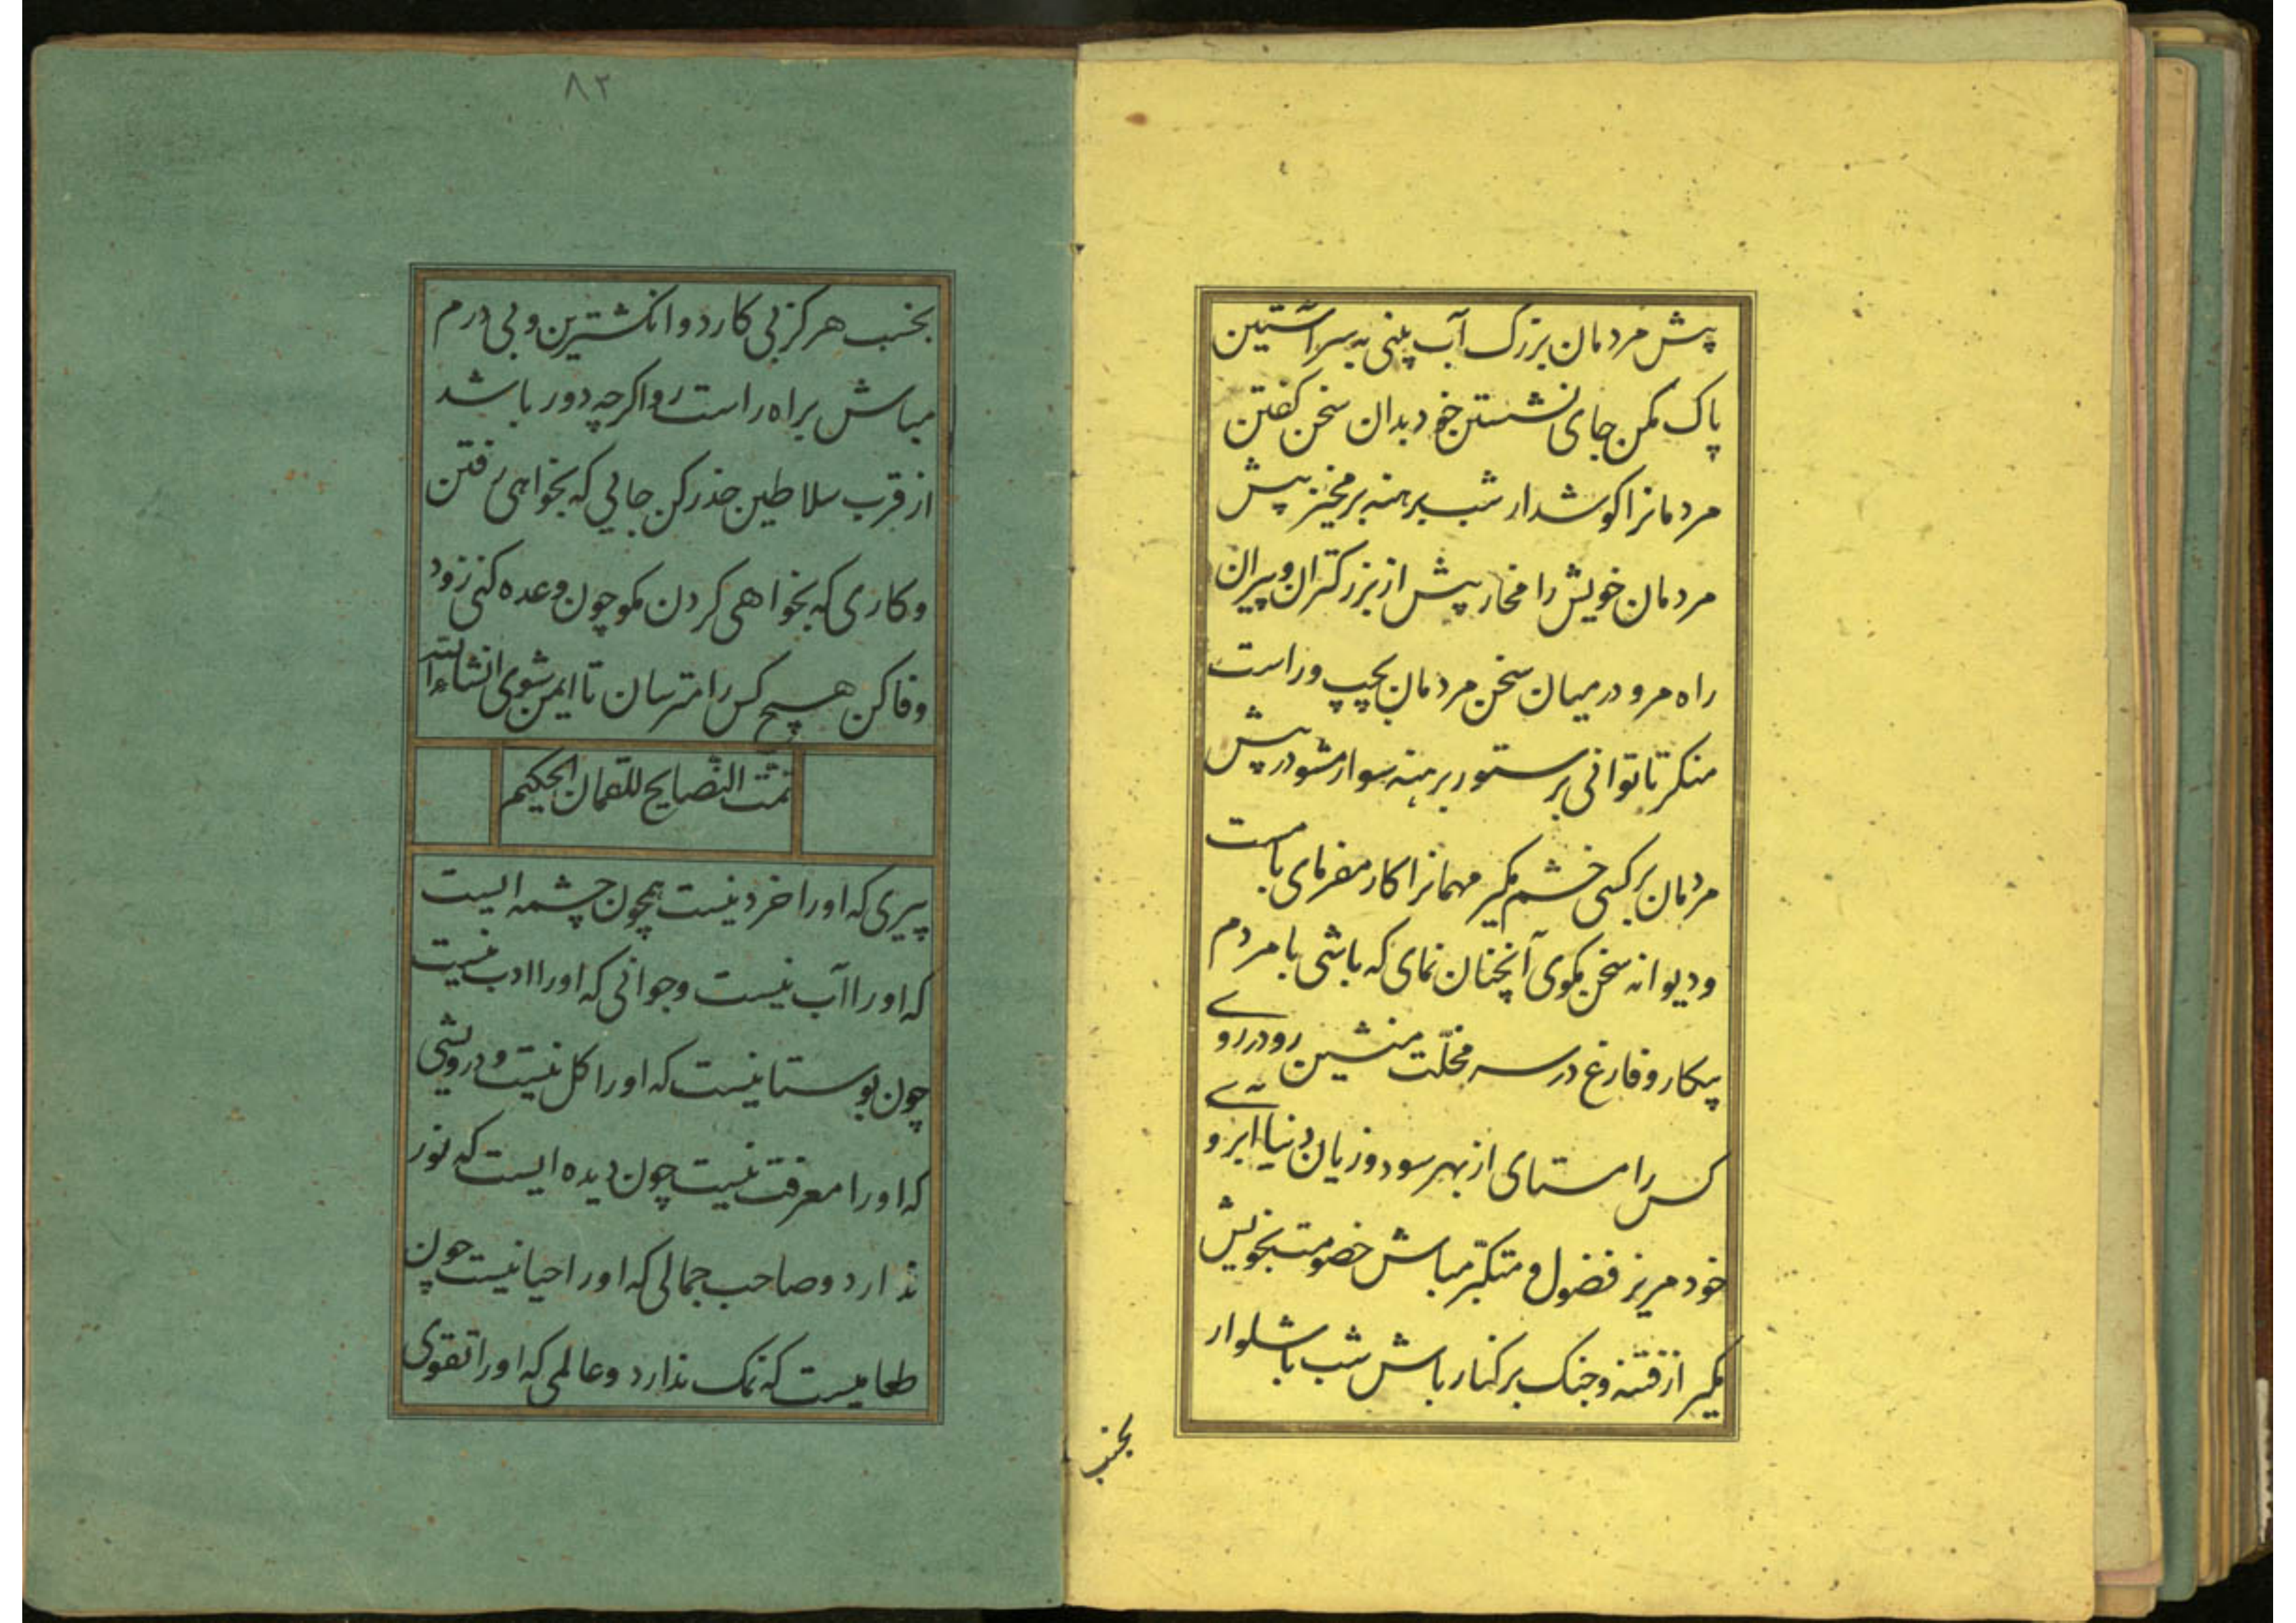 پیش مردمان بزرک آب بینی به سر آستین
پاک مکن جای نشستن خود بدان سخن کفتن
مردمانرا کوشدار شب برهنه برمخیز پیش
مردمان خویش را مخار پیش از بزرکتران و پیران
راه مرو در میان سخن مردمان بچپ و راست
منکر تا توانی بر ستور برهنه سوار مشو در پیش
مردمان بر کسی خشم مکیر مهمانرا کار مفرمای با مست
و دیوانه سخن مکوی آنچنان نمای که باشی با مردم
بیکار و فارغ در سر محلّت منشین رو در روی
کس را مستای از بهر سود و زیان دنیا ابروی
خود مریز فضول و متکبّر مباش خصومت بخویش
مکیر از فتنه و جنک بر کنار باش شب با شلوار
بخسب
۸۲
بخسب هرکز بی کارد و انکشترین و بی درم
مباش براه راست رو اکرچه دور باشد
از قرب سلاطین حذر کن جایی که بخواهی رفتن
و کاری که بخواهی کردن مکو چون وعده کنی زود
وفا کن هیچ کس را مترسان تا ایمن شوی انشاءالله
تمت النصایح للقمان الحکیم
پیری که او را خرد نیست همچون چشمه ایست
که او را آب نیست و جوانی که او را ادب نیست
چون بوستانیست که او را کل نیست و درویشی
که او را معرفت نیست چون دیده ایست که نور
ندارد و صاحب جمالی که او را حیا نیست چون
طعامیست که نمک ندارد و عالمی که او را تقوی